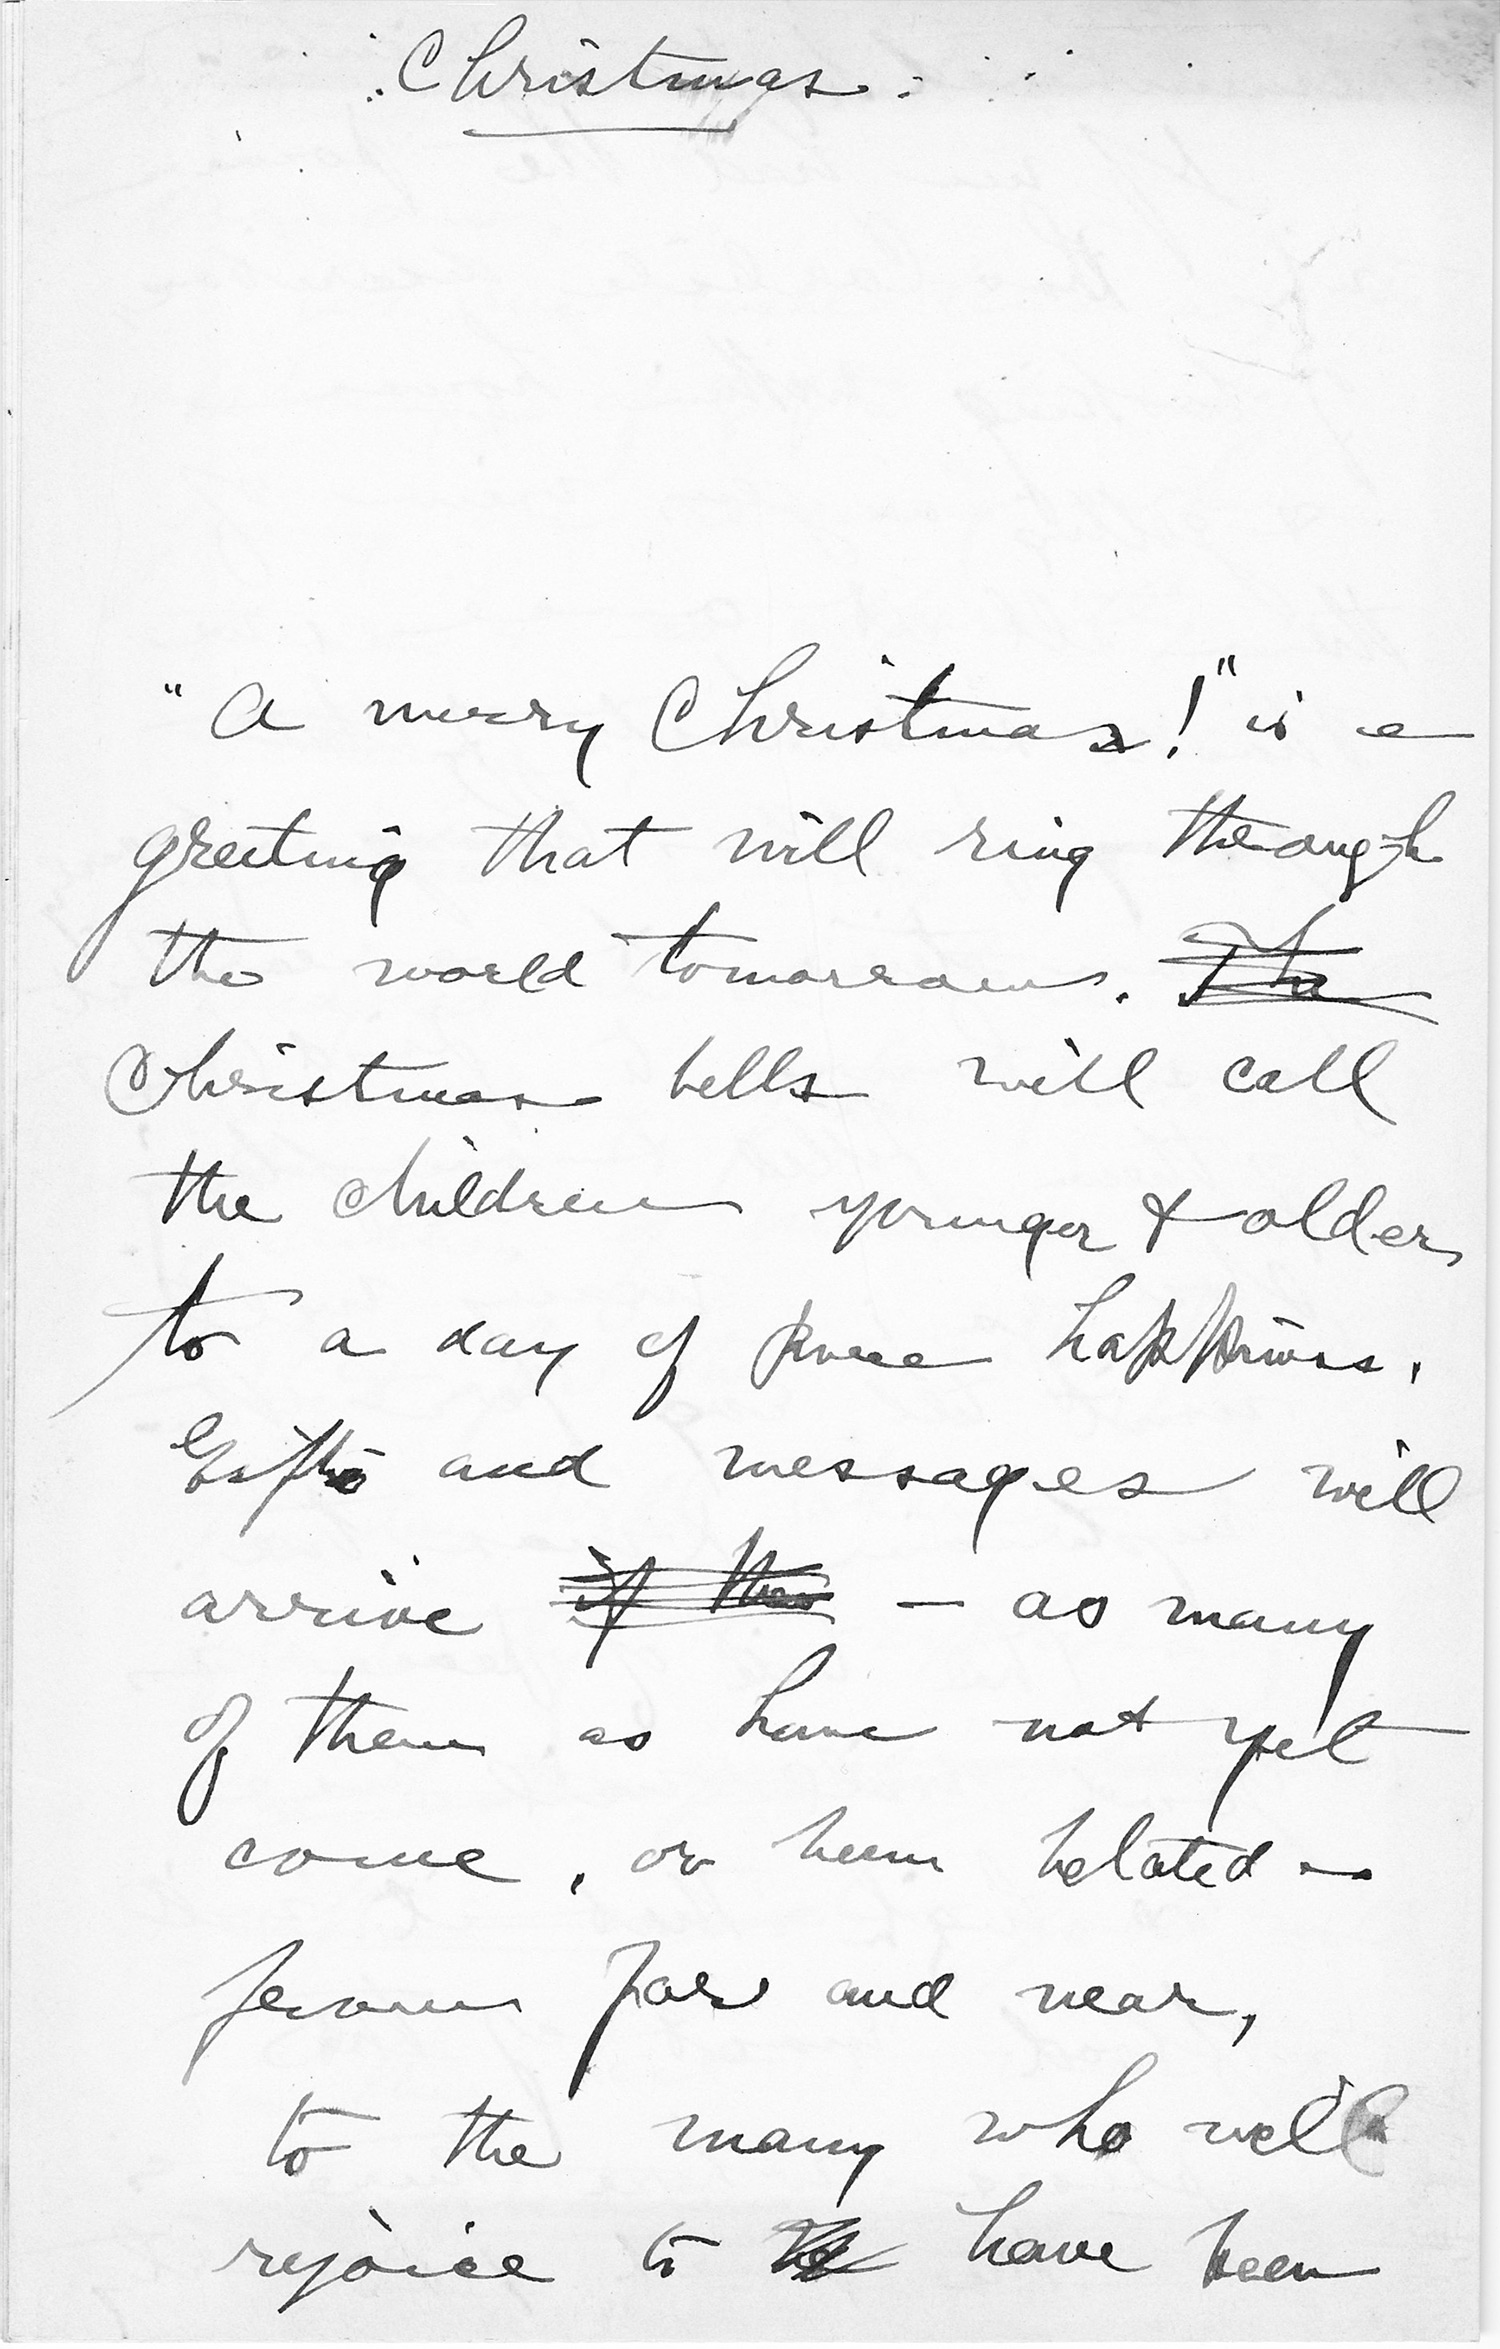 Christmas.
"A merry Christmas!" is a
greeting that will ring through
the world tomorrow. The
Christmas bells will call
the children younger & older,
to a day of pure happiness.
Gifts and messages will
arrive if the – as many
of them as have not yet
come, or been belated –
from far and near,
to the many who will
rejoice to be have been